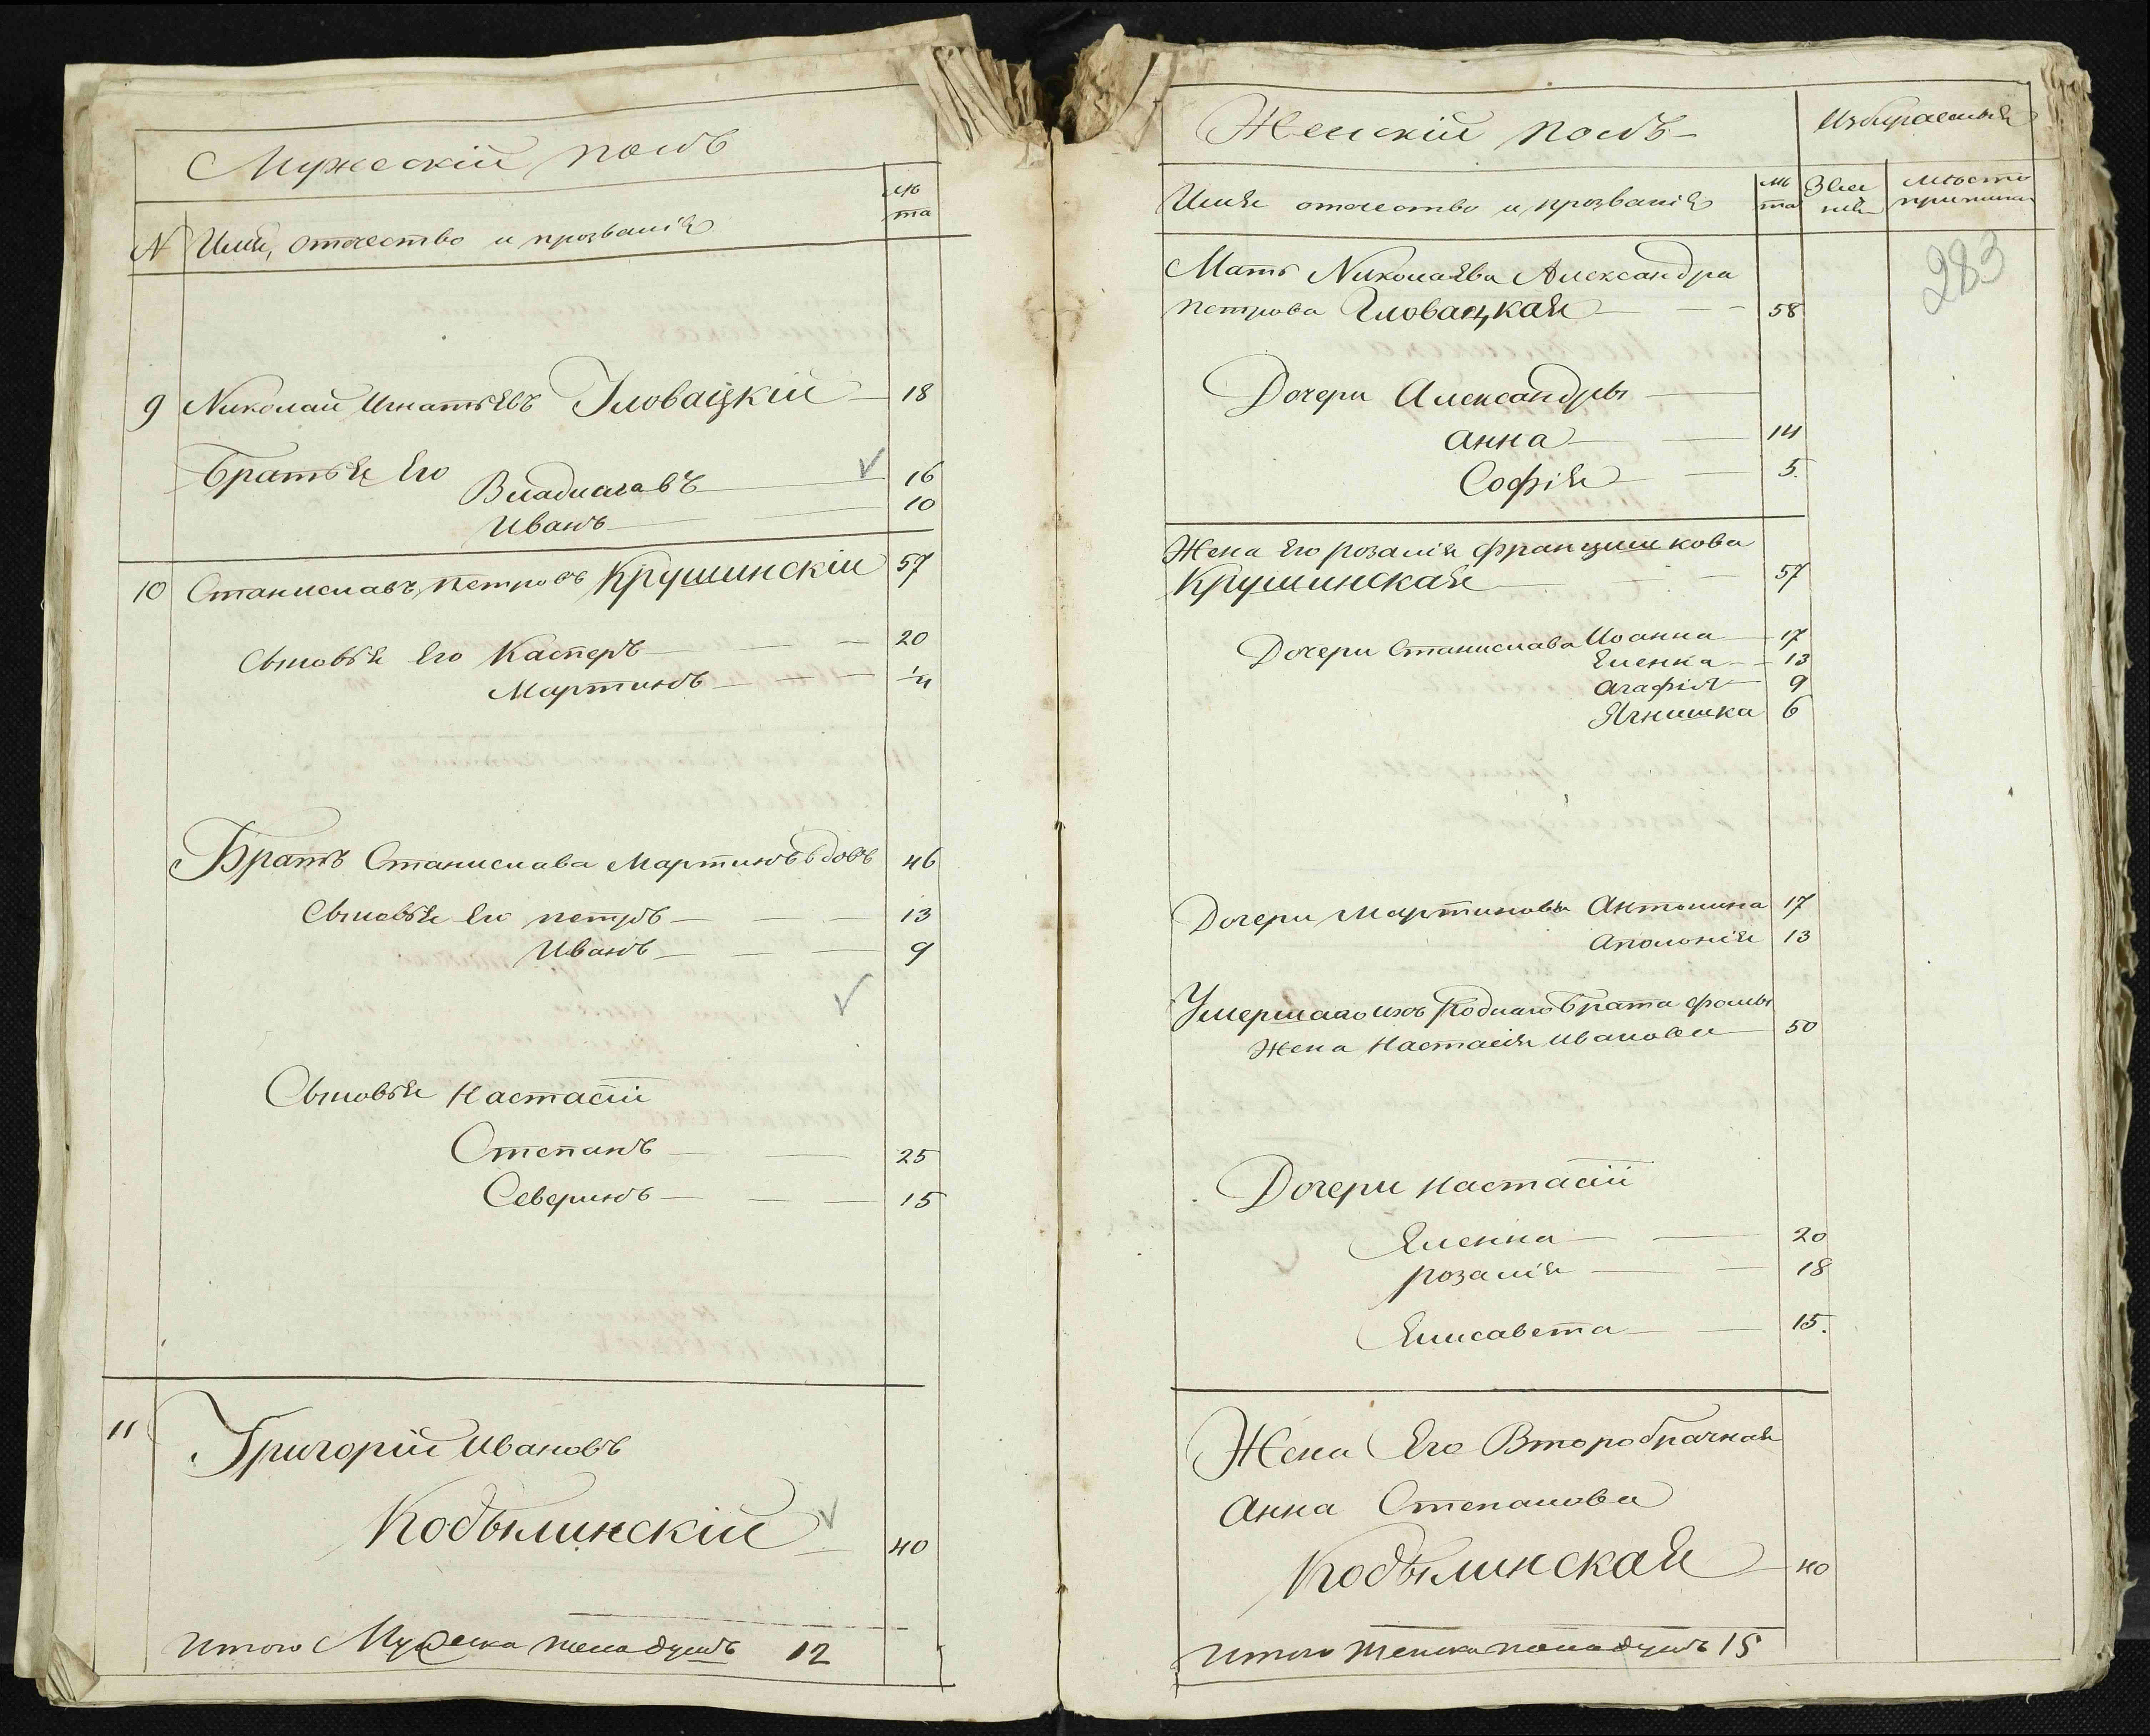 Мужескій полъ
№ Имя, отчество и прозваніе
лѣ
та
9 Николай Игнатьевъ Гловацкій 18
Братья Его
Владиславъ 16
Иванъ 10
10 Станиславъ Петровъ Крушинскій 57
Сыновья Его Касперъ 20
Мартинъ ¼
Братъ Станислава Мартинъ вдовъ 46
Сыновья Его Петръ 13
Иванъ 9
Сыновья Настасіи
Степанъ 25
Северинъ 15
11 Григорій Ивановъ
Кобылинскій 40
Итого Мужеска пола душъ 12
Женскій полъ
Избираемыя
Имя отчество и прозваніе
лѣ
та
Зва
ніе
мѣсто
приписки
283
Мать Николаева Александра
Петрова Гловацкая 58
Дочери Александры
Анна 14
Софія 5.
Жена Его Розалія Францишкова
Крушинская 57
Дочери Станислава Иоанна 17
Еленка 13
Агафія 9
Ягнишка 6
Дочери Мартиновы Антонина 17
Аполонія 13
Умершаго ихъ роднаго брата Фомы
Жена Настасія Иванова 50
Дочери Настасіи
Еленна 20
Розалія 18
Елисавета 15.
Жена Его Второбрачная
Анна Степанова
Кобылинская 40
Итого Женска пола душъ 15